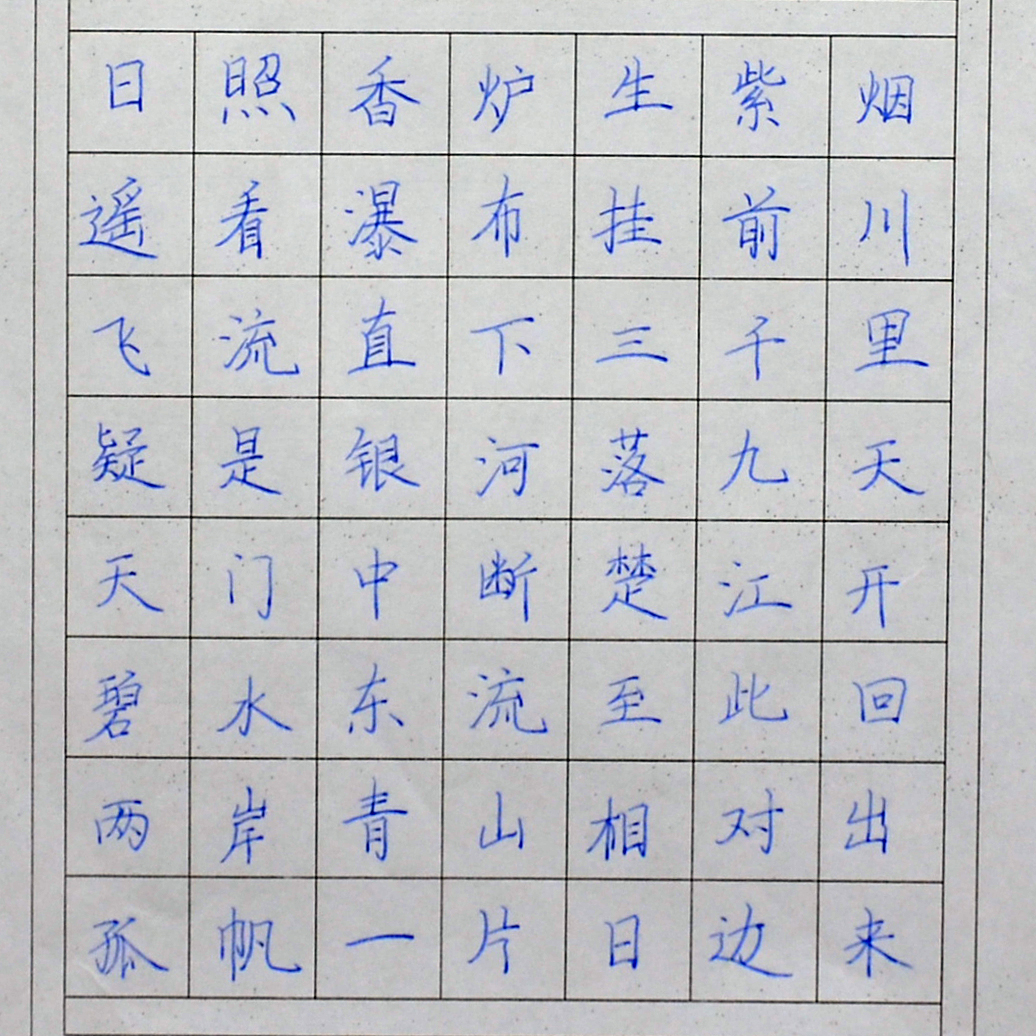 日照香炉生紫烟
遥看瀑布挂前川
飞流直下三千里
疑是银河落九天
天门中断楚江开
碧水东流至此回
两岸青山相对出
孤帆一片日边来